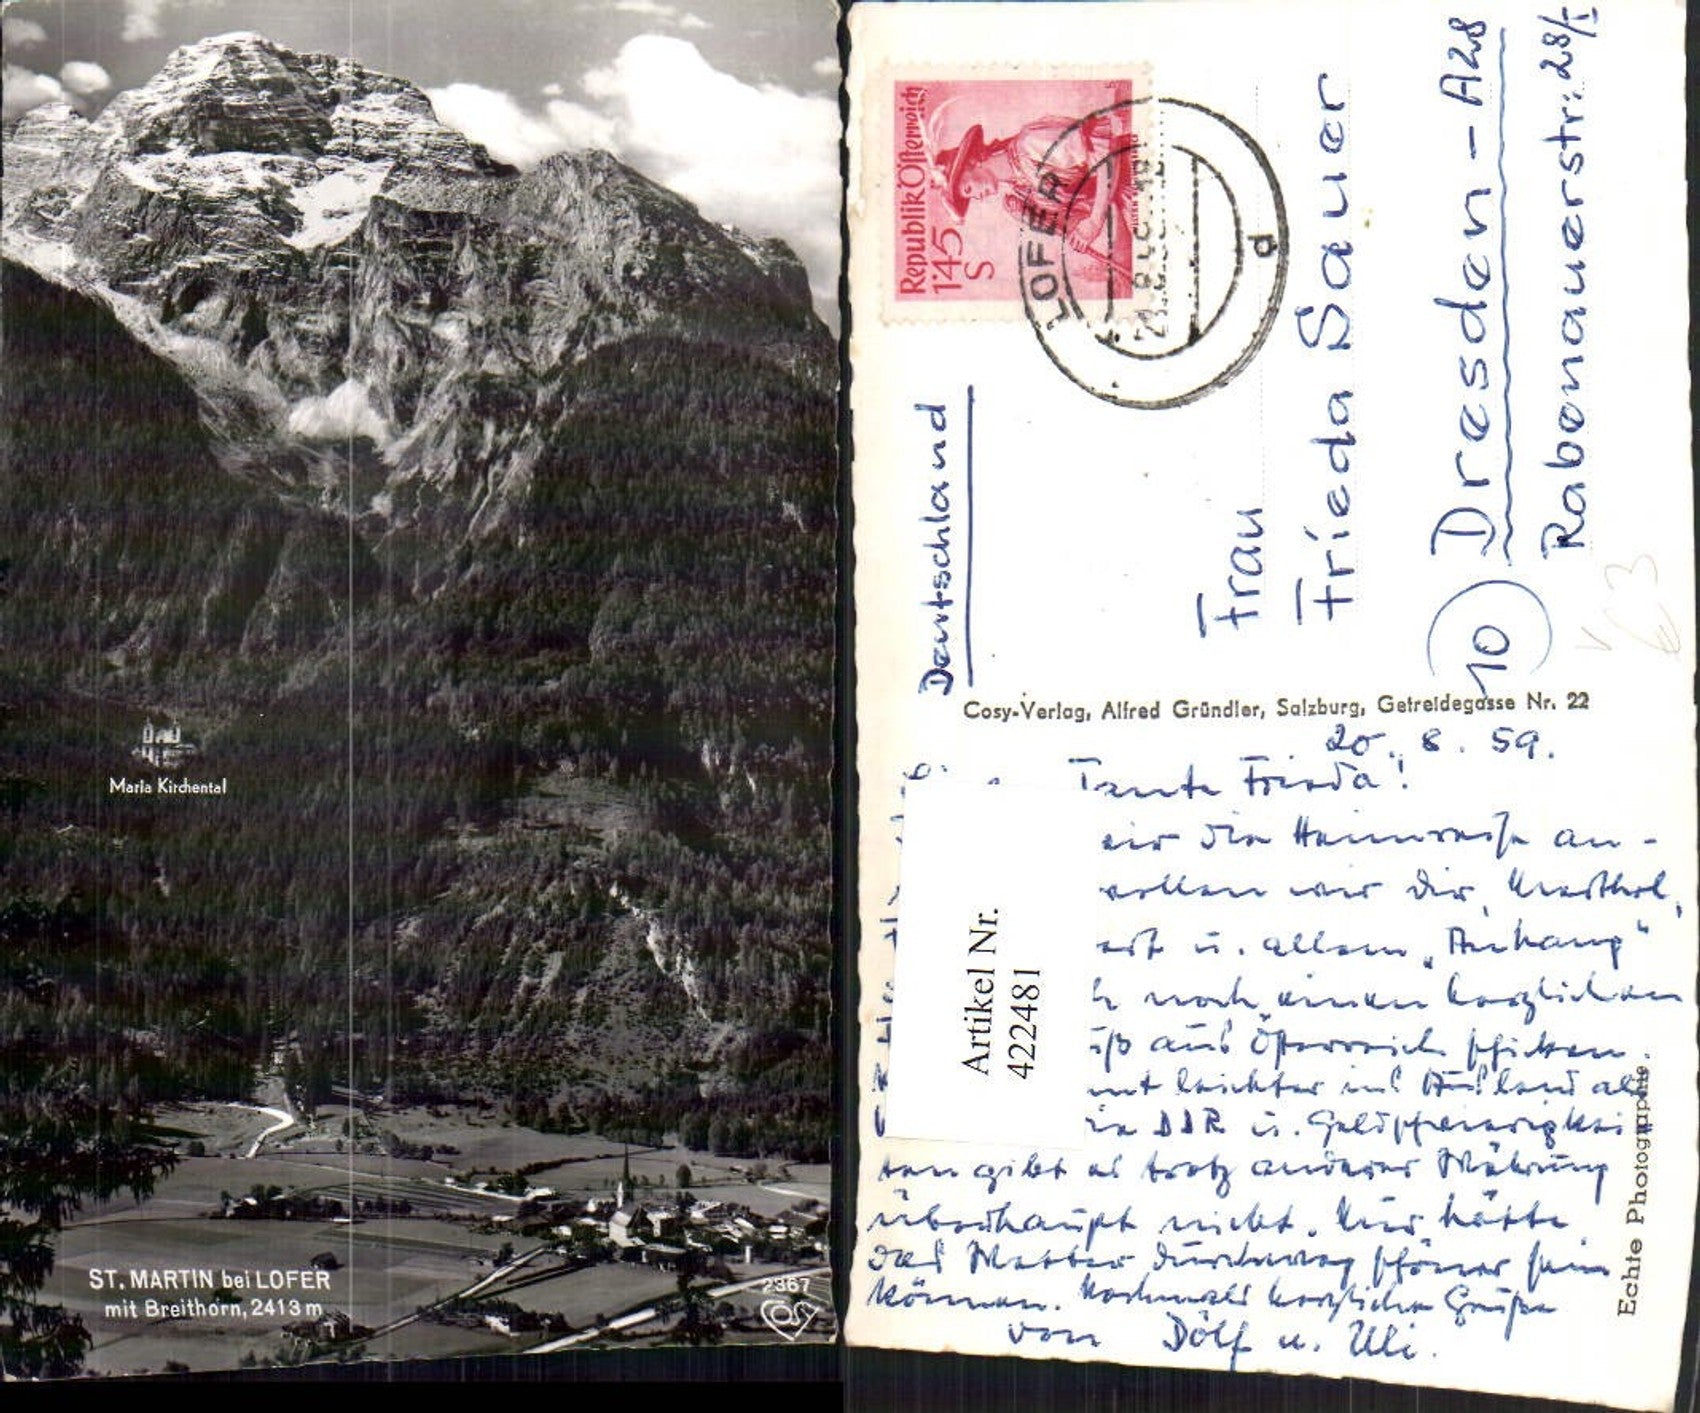 Maria Kirchental
ST. MARTIN bei LOFER
mit Breithorn, 2413 m
2367
COSY
Republik Österreich
1'45
S
LOFER
d
Deutschland
Frau
Frieda Sauer
(10) Dresden - A28
Rabenauerstr: 28/I
Cosy-Verlag, Alfred Gründler, Salzburg, Getreidegasse Nr. 22
20. 8. 59.
Tante Frieda!
wir die Heimreise an-
wollen wir Dir,
u. allem „Anhang"
noch einen herzlichen
aus Österreich schicken.
leichter ins Ausland als
DDR u. Geldschwierigkei
ten gibt es trotz anderer Währung
überhaupt nicht. Nur hätte
das Wetter durchweg schöner sein
können. Nochmals herzliche Grüße
von Dölf u. Uli.
Echte Photographie
Artikel Nr.
422481
€3